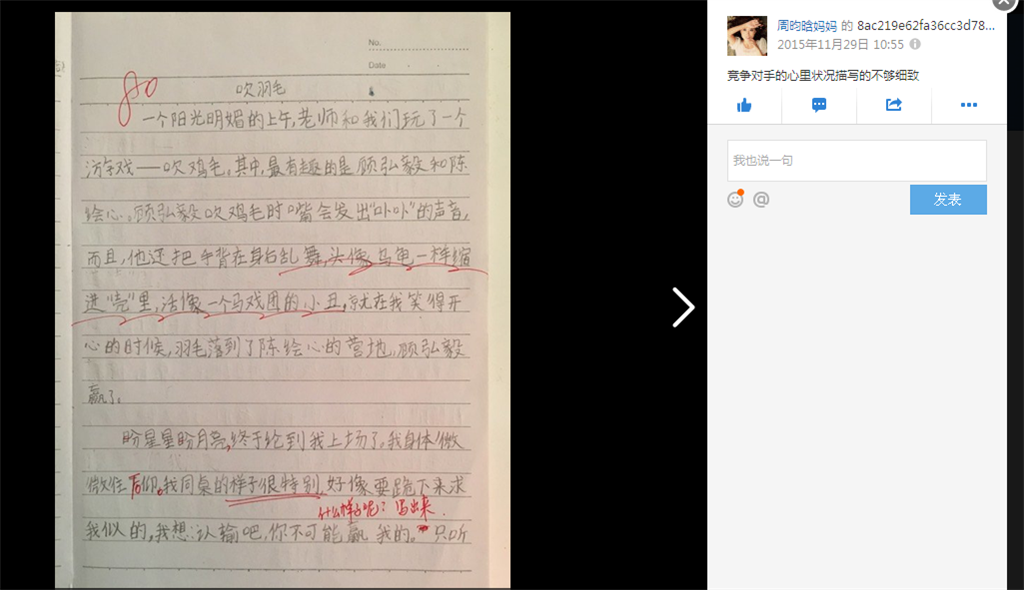 No.
Date
80
吹羽毛
一个阳光明媚的上午,老师和我们玩了一个
游戏——吹鸡毛。其中,最有趣的是顾弘毅和陈
绘心。顾弘毅吹鸡毛时嘴会发出“卟卟”的声音,
而且,他还把手背在身后乱舞,头像乌龟一样缩
进“壳”里,活像一个马戏团的小丑,就在我笑得开
心的时候,羽毛落到了陈绘心的营地,顾弘毅
赢了。
盼星星盼月亮,终于轮到我上场了,我身体微
微往后仰。我同桌的样子很特别,好像要跪下来求
什么样子呢?写出来.
我似的,我想:认输吧,你不可能赢我的。只听
周昀晗妈妈 的 8ac219e62fa36cc3d78...
2015年11月29日 10:55
竞争对手的心里状况描写的不够细致
我也说一句
发表